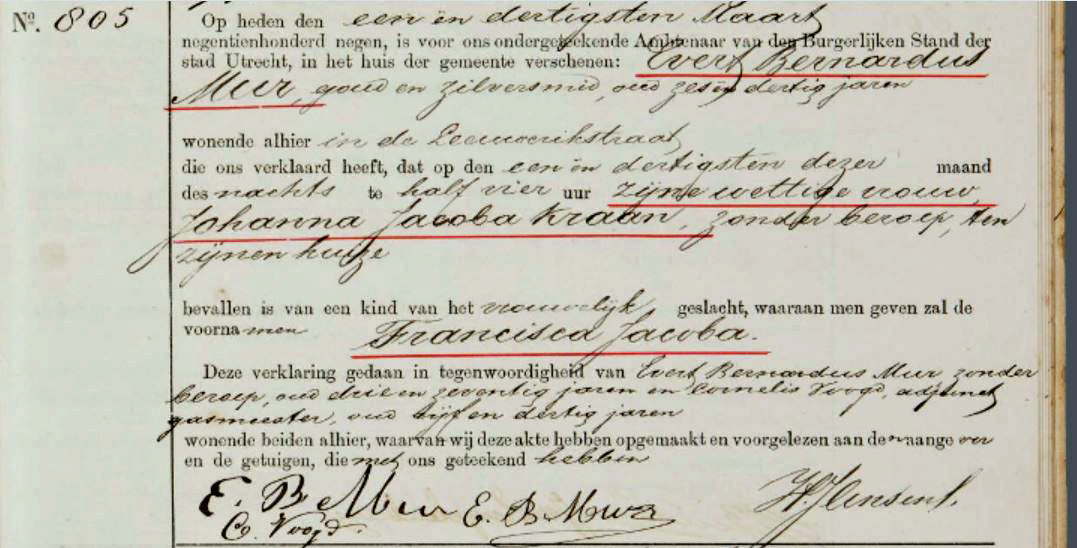 No. 805
Op heden den een en dertigsten Maart
negentienhonderd negen, is voor ons ondergeteekende Ambtenaar van den Burgerlijken Stand der
stad Utrecht, in het huis der gemeente verschenen: Evert Bernardus
Mur, goud en zilversmid, oud zes en dertig jaren
wonende alhier in de Leeuwerikstraat
die ons verklaard heeft, dat op den een en dertigsten dezer maand
des nachts te half vier uur zijne wettige vrouw,
Johanna Jacoba Kraan, zonder beroep, ten
zijnen huize
bevallen is van een kind van het vrouwelijk geslacht, waaraan men geven zal de
voornamen Francisca Jacoba.
Deze verklaring gedaan in tegenwoordigheid van Evert Bernardus Mur, zonder
beroep, oud drie en zeventig jaren en Cornelis Voogd, adjunct
gasmeester, oud vijf en dertig jaren
wonende beiden alhier, waarvan wij deze akte hebben opgemaakt en voorgelezen aan den aangever
en de getuigen, die met ons geteekend hebben
E. B. Mur E. B. Mur
C. Voogd.